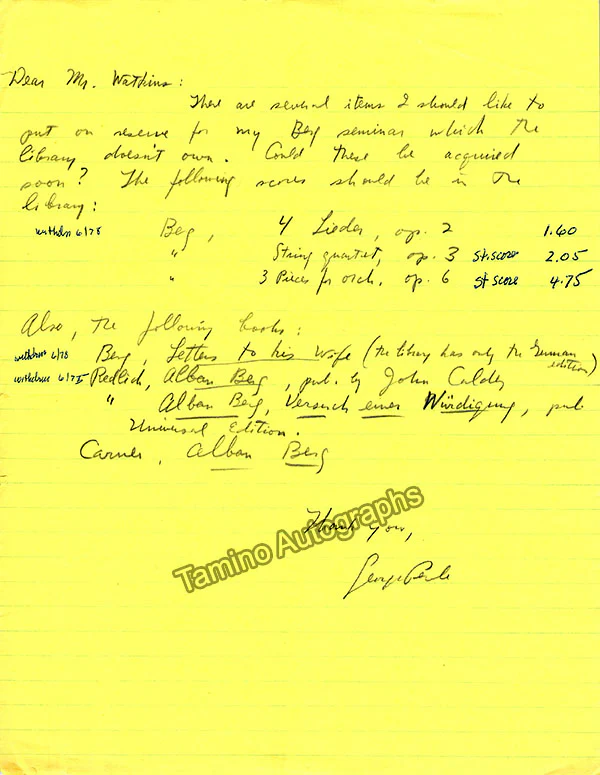 Dear Mr. Watkins:
There are several items I should like to
put on reserve for my Berg seminar which the
library doesn't own. Could these be acquired
soon? The following scores should be in the
library:
withdrn 6/78 Berg, 4 Lieder, op. 2 1.60
" String quartet, op. 3 St. score 2.05
" 3 Pieces for orch. op. 6 St score 4.75
Also, the following books:
withdrn 6/78 Berg, Letters to his Wife (the library has only the German
edition)
withdrawn 6/78 Redlich, Alban Berg, pub. by John Calder
" Alban Berg, Versuch einer Würdigung, pub
Universal Edition.
Carner, Alban Berg
Thank you,
George Perle
Tamino Autographs